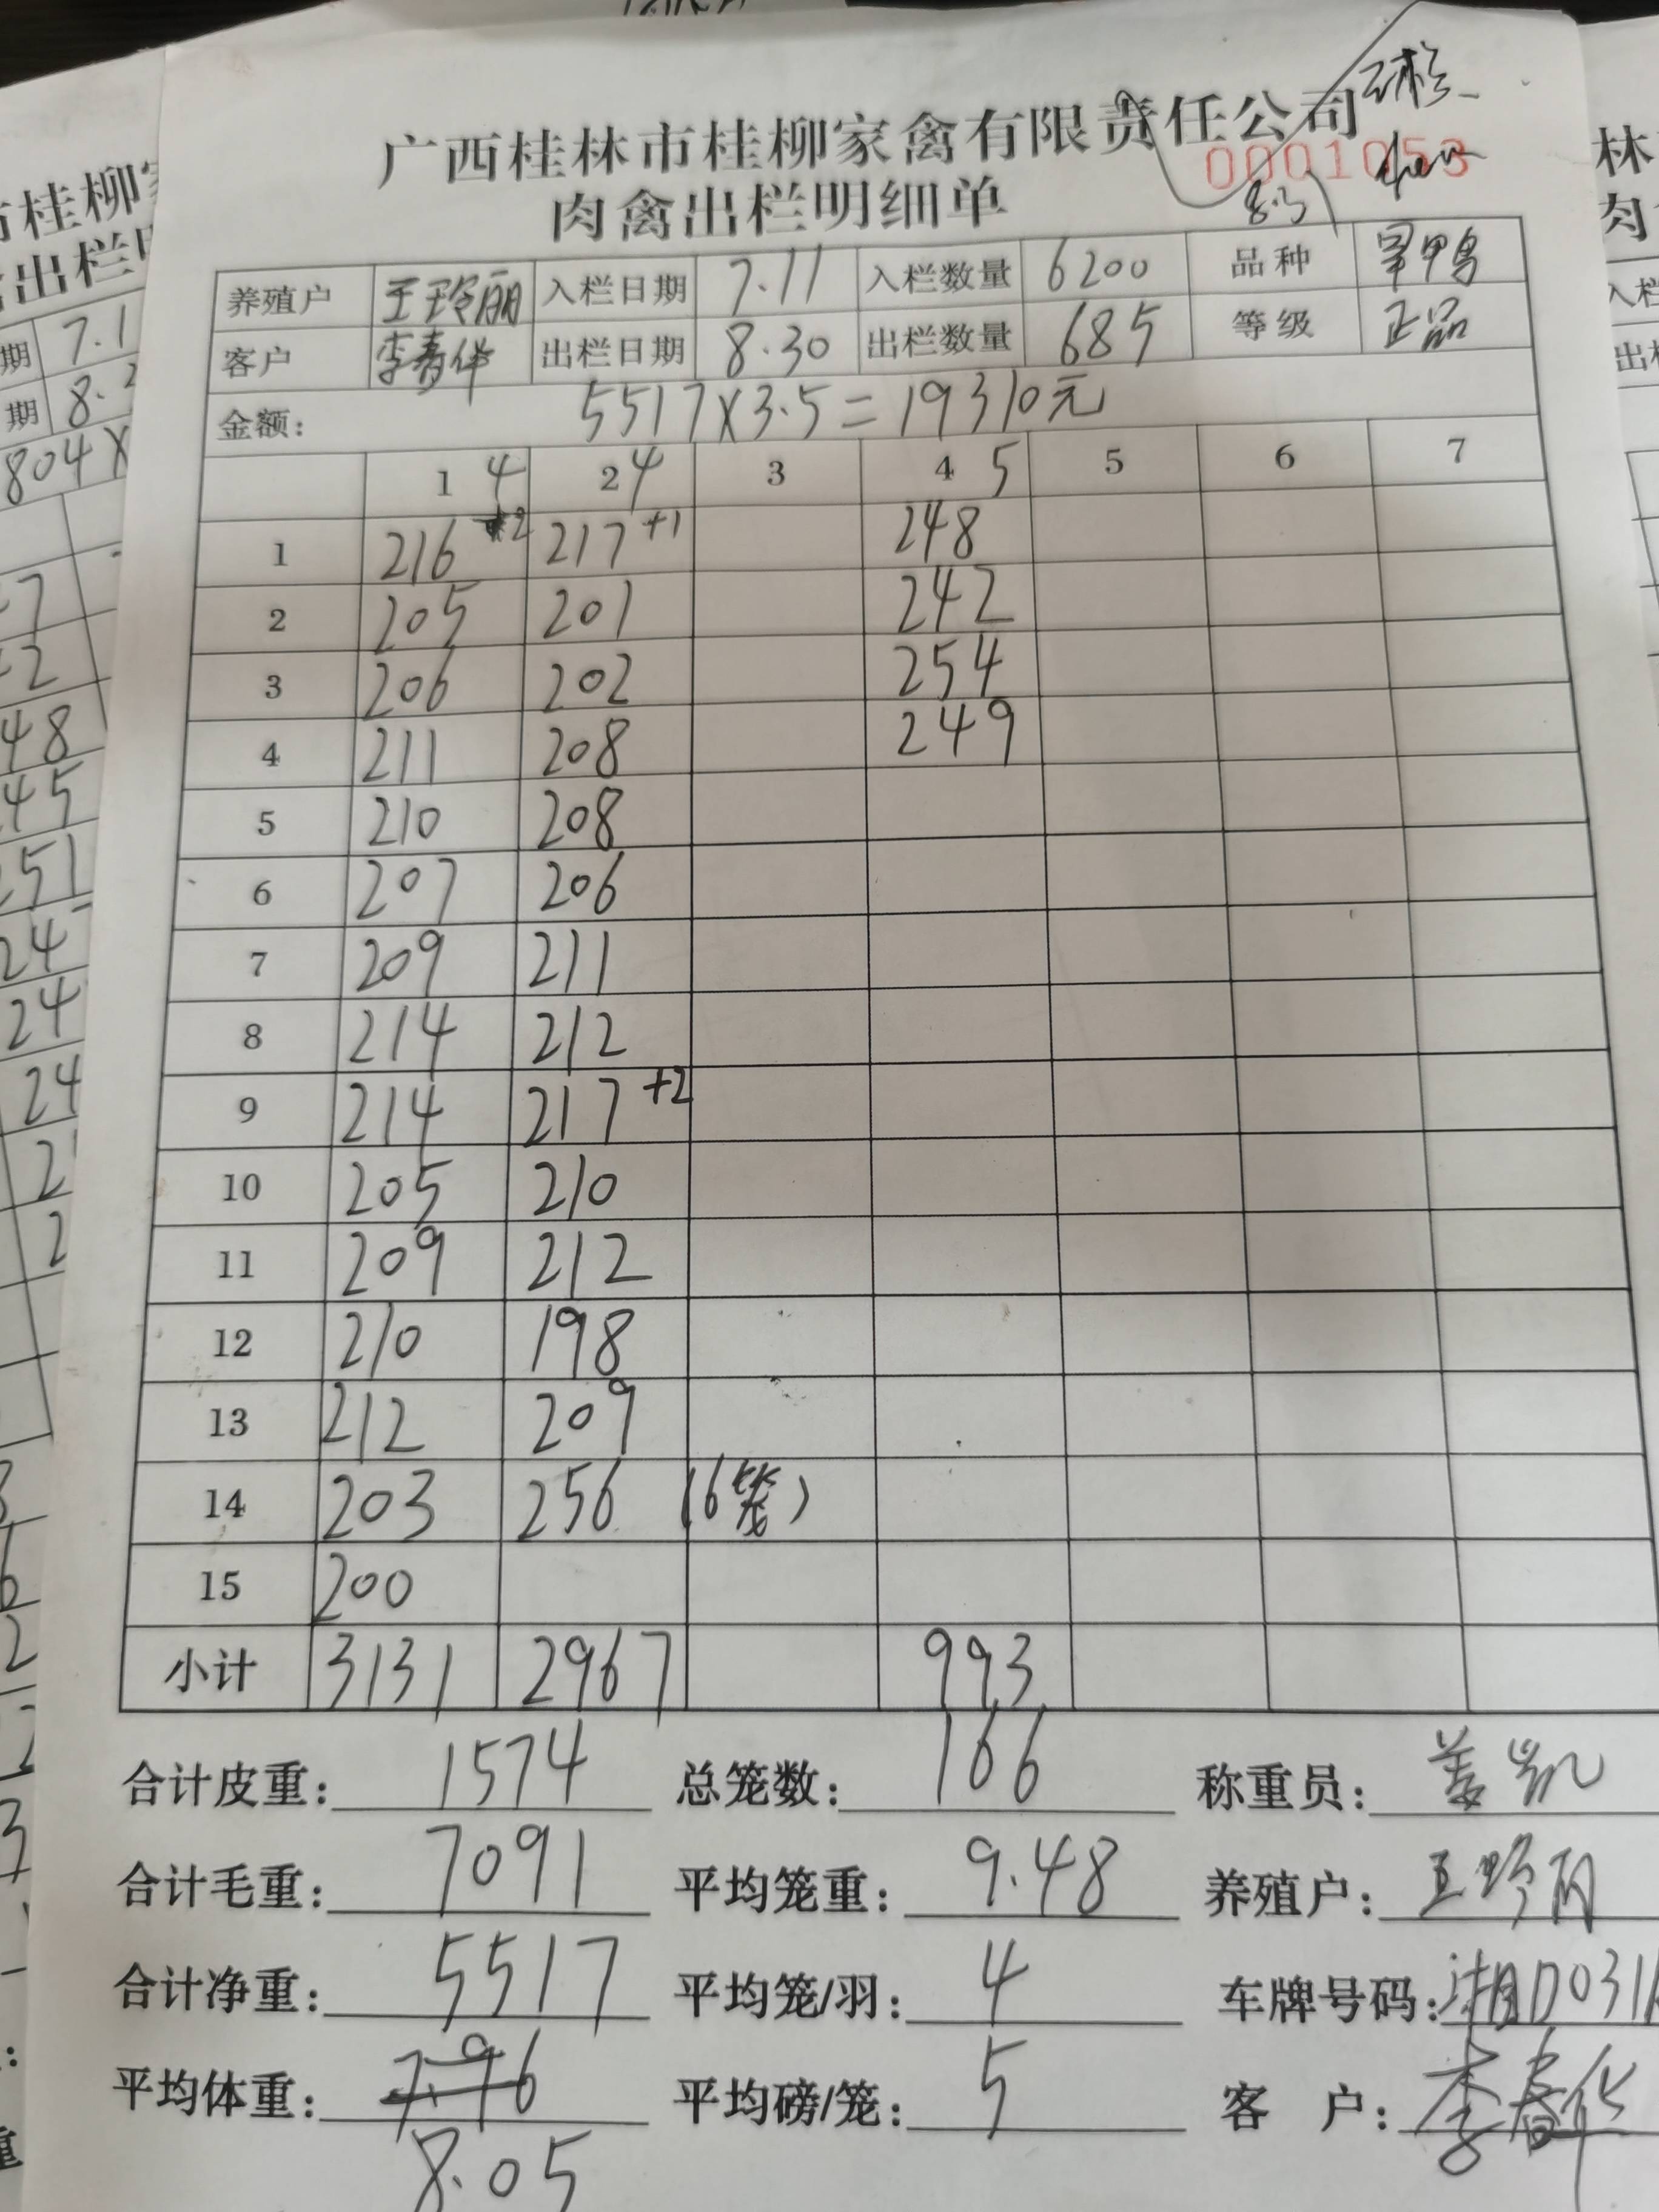 广西桂林市桂柳家禽有限责任公司
0001053
肉禽出栏明细单
养殖户 王玲丽 入栏日期 7.11 入栏数量 6200 品种
客户 李春华 出栏日期 8.30 出栏数量 685 等级 正品
金额: 5517×3.5=19310元
1 4 2 4 3 4 5 5 6 7
1 216 +2 217 +1 248
2 205 201 242
3 206 202 254
4 211 208 249
5 210 208
6 207 206
7 209 211
8 214 212
9 214 217 +2
10 205 210
11 209 212
12 210 198
13 212 209
14 203 256 (6笼)
15 200
小计 3131 2967 993
合计皮重: 1574 总笼数: 166 称重员: 姜凯
合计毛重: 7091 平均笼重: 9.48 养殖户: 王玲丽
合计净重: 5517 平均笼/羽: 4 车牌号码: 湘D031
平均体重: 7.96 平均磅/笼: 5 客 户: 李春华
8.05
市桂柳家
出栏明
期 7.1
期 8.2
804×
48
45
51
24
24
24
林
肉
入栏
出栏